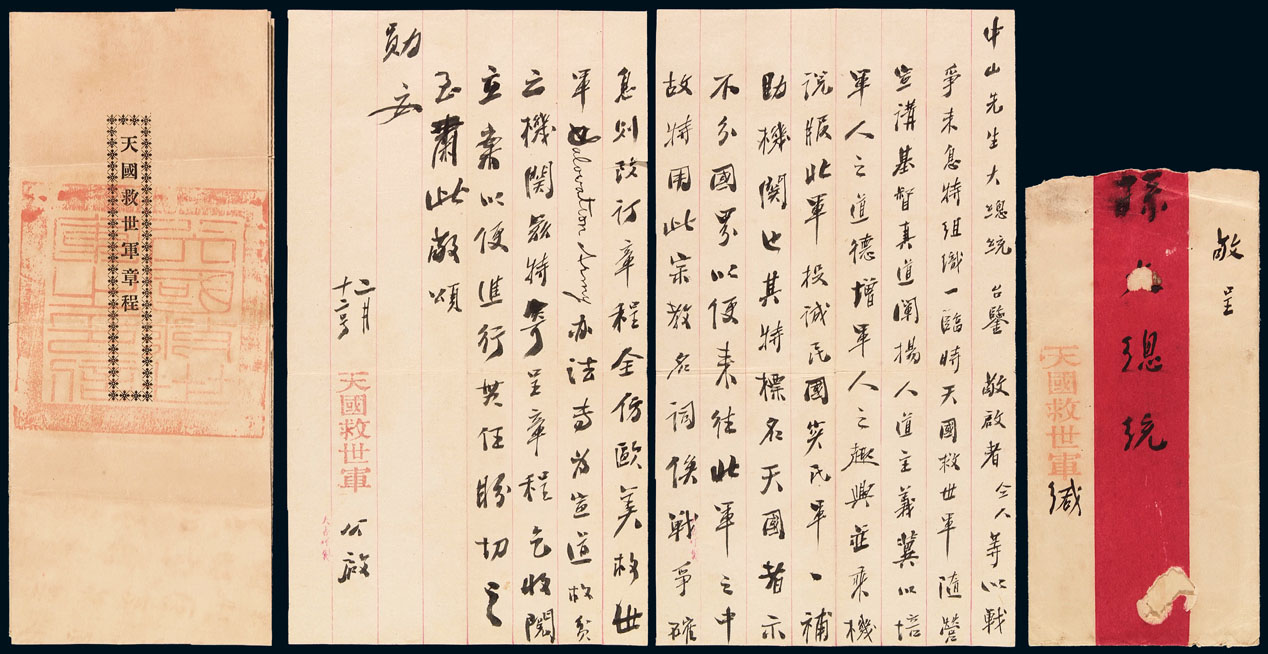 敬呈
孫大總統
天國救世軍
緘
中山先生大總統 台鑒 敬啟者 仝人等以戰
爭未息特組織一臨時天國救世軍隨營
宣講基督真道闡揚人道主義冀以培
軍人之道德增軍人之趣興並乘機
說服此軍投誠民國笑民軍一補
助機関也其特標名天國者示
不分國界以便来往此軍之中
故特用此宗教名詞俟戰爭確
息则改订章程全仿歐美格世
軍Salovation Army亦法专为宣道救贫
之機関茲特寄呈章程乞收閱
立案以便進行無任盼切之
至肅此敬頌
勛安
天國救世軍 公啟
二月十二号
天國救世軍章程